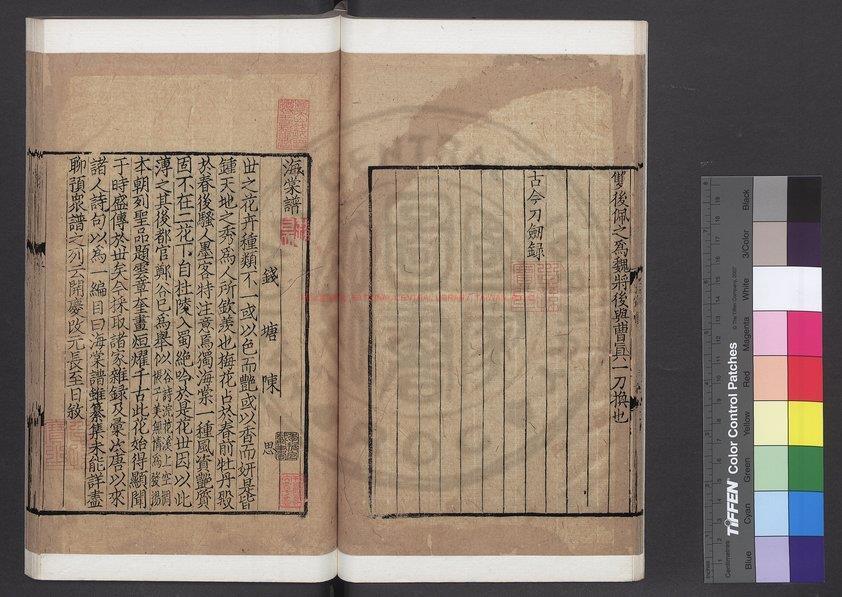 雙後佩之為魏將後與曹真一刀換也
古今刀劍録
海棠譜
錢塘陳思
世之花卉種類不一或以色而艷或以香而妍是皆
鍾天地之秀為人所欽羨也梅花占於春前牡丹殿
於春後騷人墨客特注意焉獨海棠一種風姿艷質
固不在二花下自杜陵入蜀絶吟於是花世因以此
薄之其後都官鄭谷已為舉似
谷詩浣花溪上空惆
悵子美無情為發揚
本朝列聖品題雲章奎畫烜耀千古此花始得顯聞
于時盛傳於世矣今採取諸家雜録及彙次唐以來
諸人詩句以為一編目曰海棠譜雖纂集未能詳盡
聊預衆譜之列云開慶改元長至日敘
TIFFEN Color Control Patches
© The Tiffen Company, 2007
Centimetres
Inches
Blue
Cyan
Green
Yellow
Red
Magenta
White
3/Color
Black